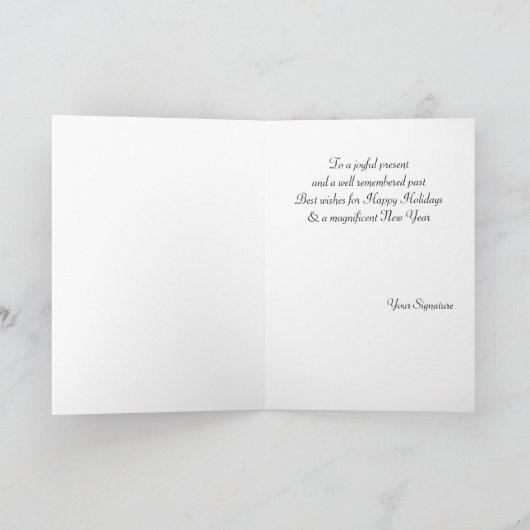 To a joyful present
and a well remembered past
Best wishes for Happy Holidays
& a magnificent New Year
Your Signature